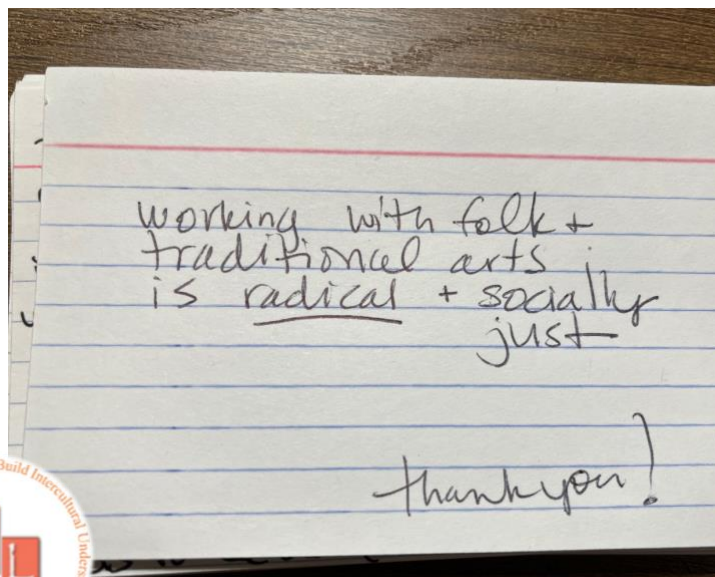 working with folk +
traditional arts
is radical + socially
just
thank you!
Build Intercultural